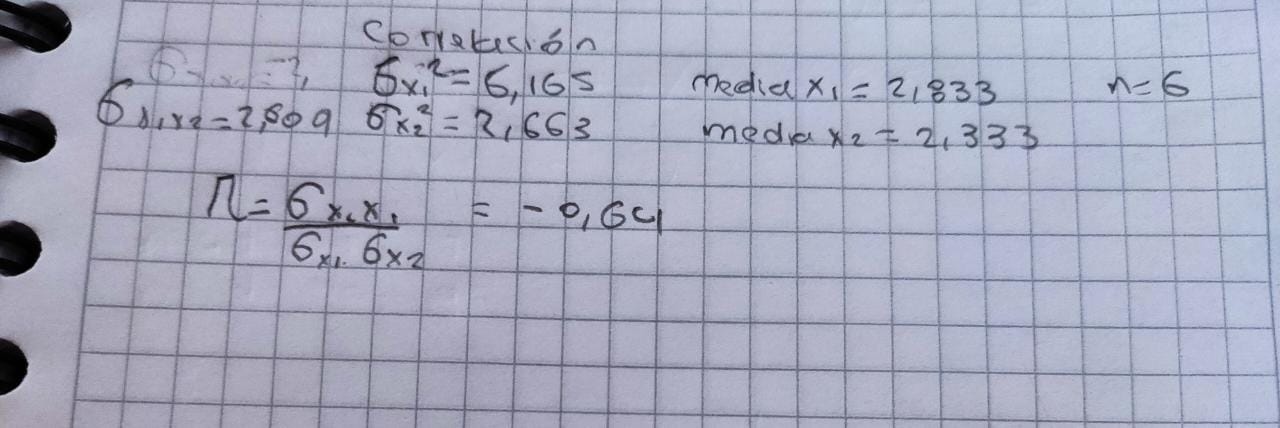 Correlación
σx₁² = 6,165 media x₁ = 2,833 n = 6
σx₁x₂ = 2,809 σx₂² = 2,663 media x₂ = 2,333
r = σx₁x₁ / σx₁ · σx₂ = -0,64